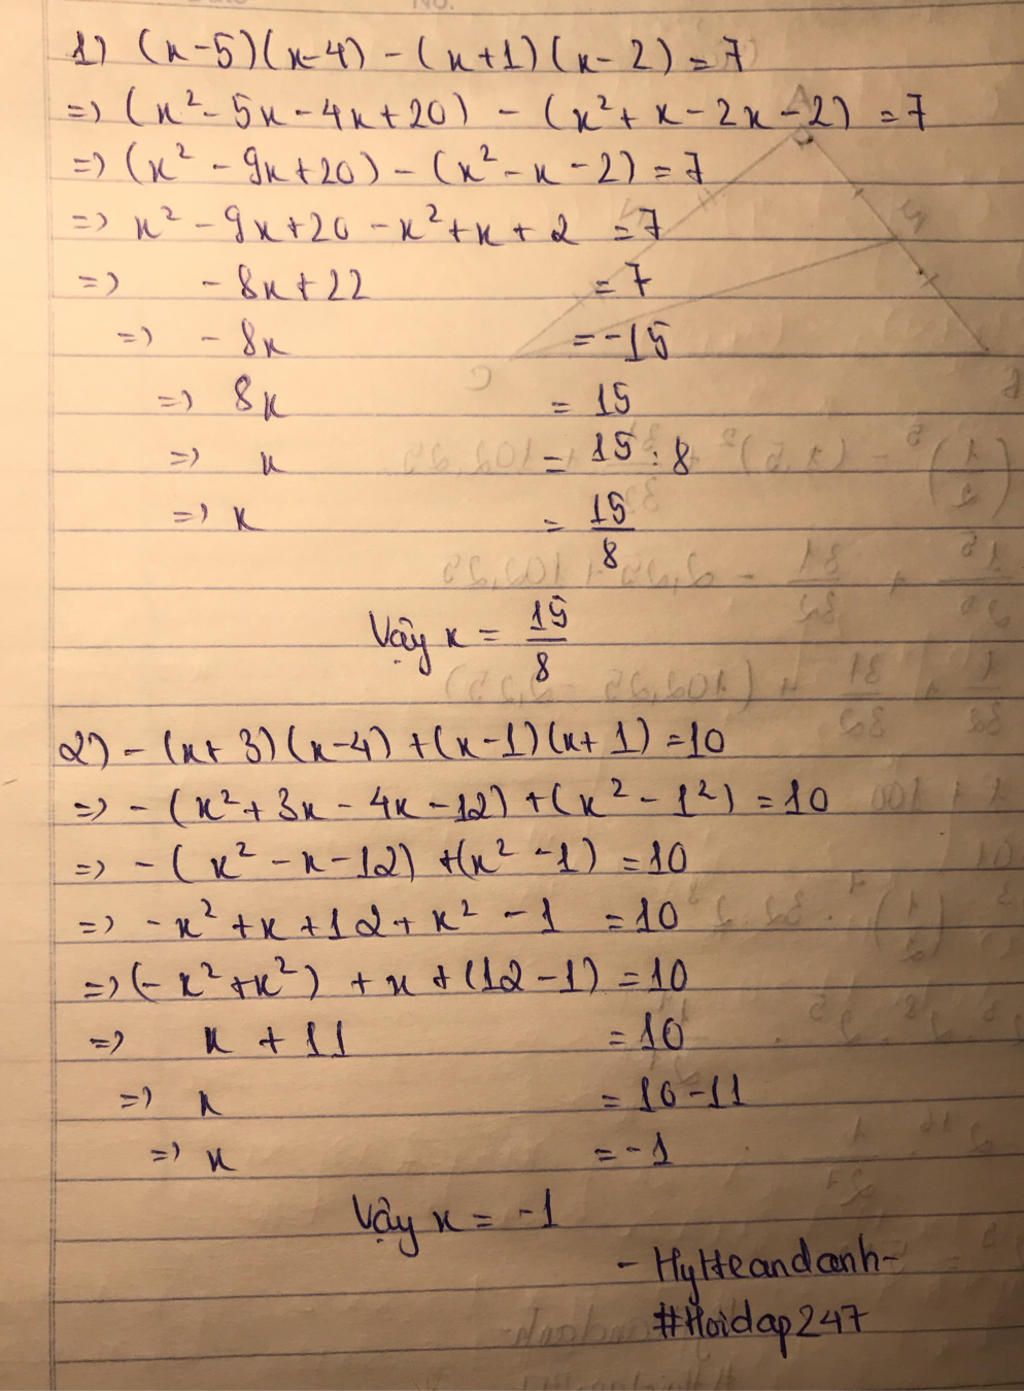 1) (x-5)(x-4) - (x+1)(x-2) = 7
=> (x² - 5x - 4x + 20) - (x² + x - 2x - 2) = 7
=> (x² - 9x + 20) - (x² - x - 2) = 7
=> x² - 9x + 20 - x² + x + 2 = 7
=> - 8x + 22 = 7
=> - 8x = -15
=> 8x = 15
=> x = 15 : 8
=> x = 15/8
Vậy x = 15/8
2) - (x+3)(x-4) + (x-1)(x+1) = 10
=> - (x² + 3x - 4x - 12) + (x² - 1²) = 10
=> - (x² - x - 12) + (x² - 1) = 10
=> - x² + x + 12 + x² - 1 = 10
=> (- x² + x²) + x + (12 - 1) = 10
=> x + 11 = 10
=> x = 10 - 11
=> x = -1
Vậy x = -1
#Hoidap247